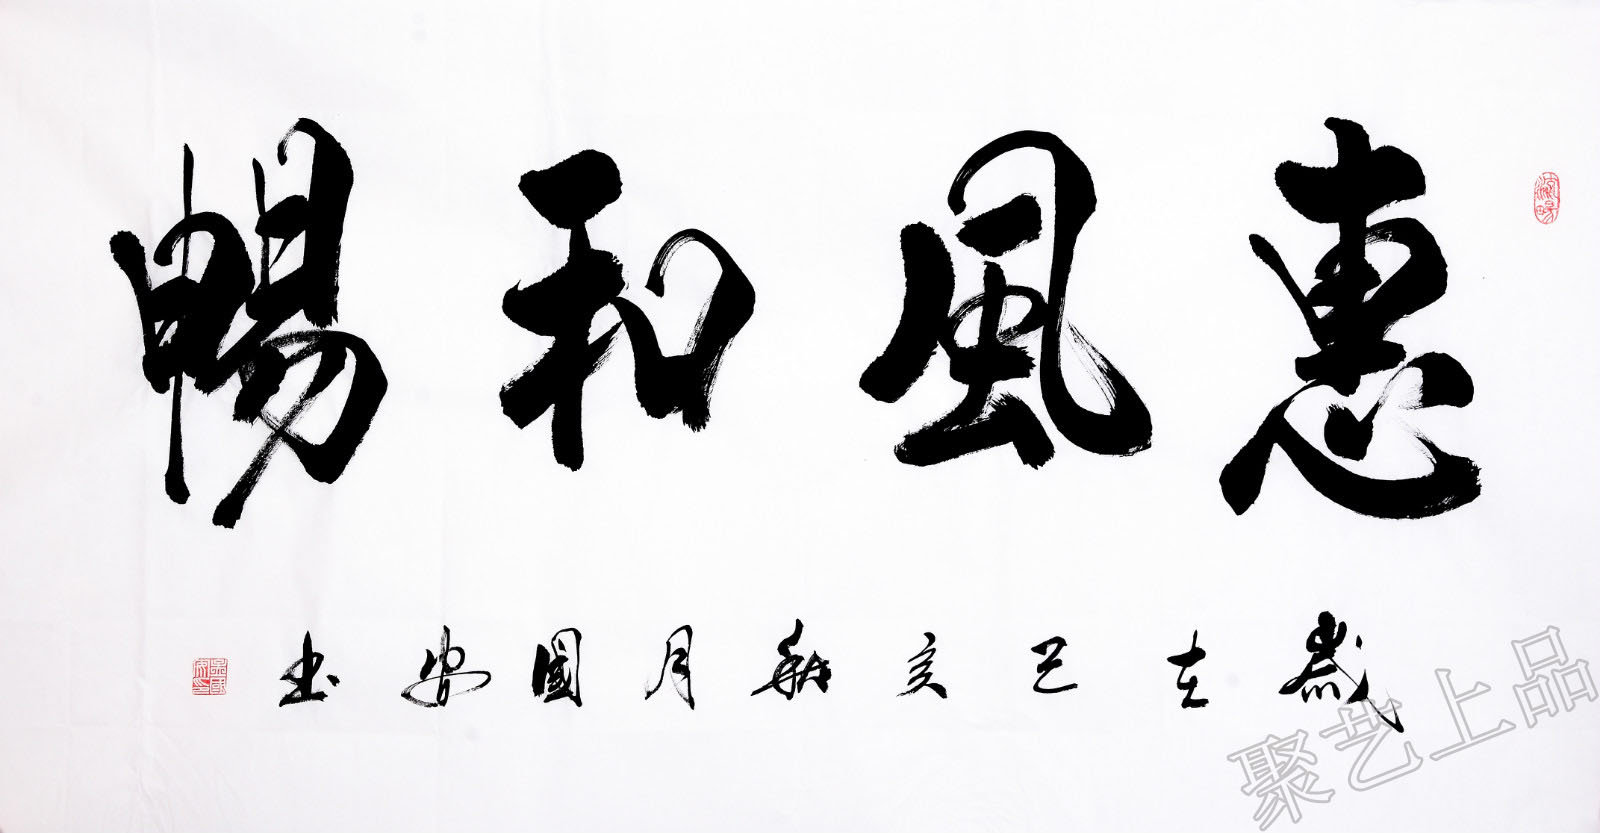 惠風和暢
歲在己亥秋月國安书
聚艺上品